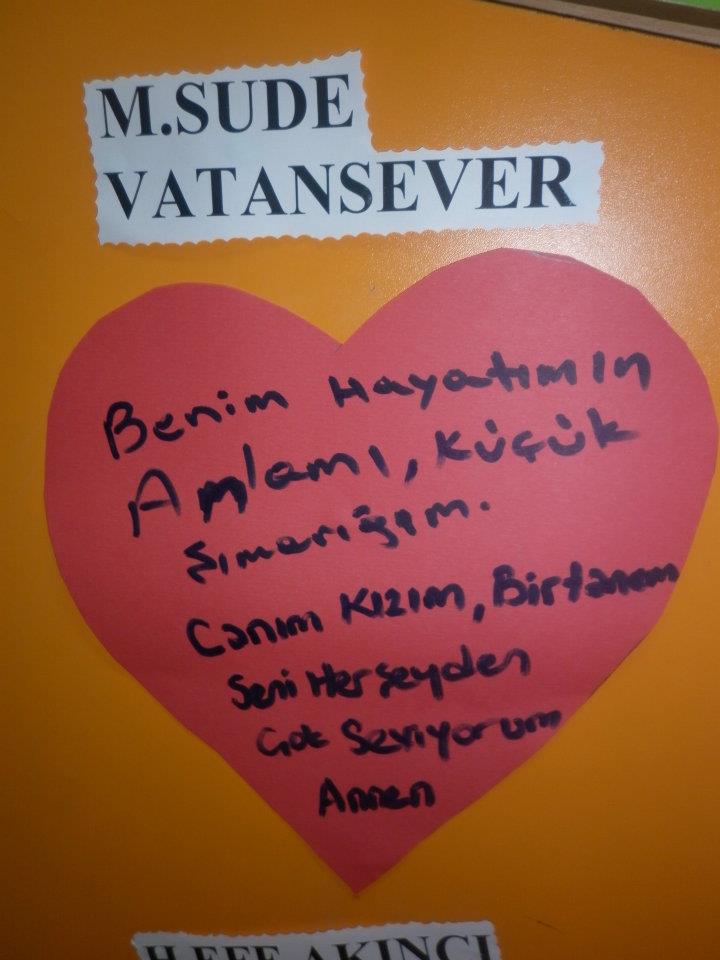 M.SUDE
VATANSEVER
Benim Hayatımın
Anlamı, Küçük
Şımarığım.
Canım Kızım, Birtanem
Seni Herşeyden
Çok Seviyorum
Annen
H.EFE AKINCI